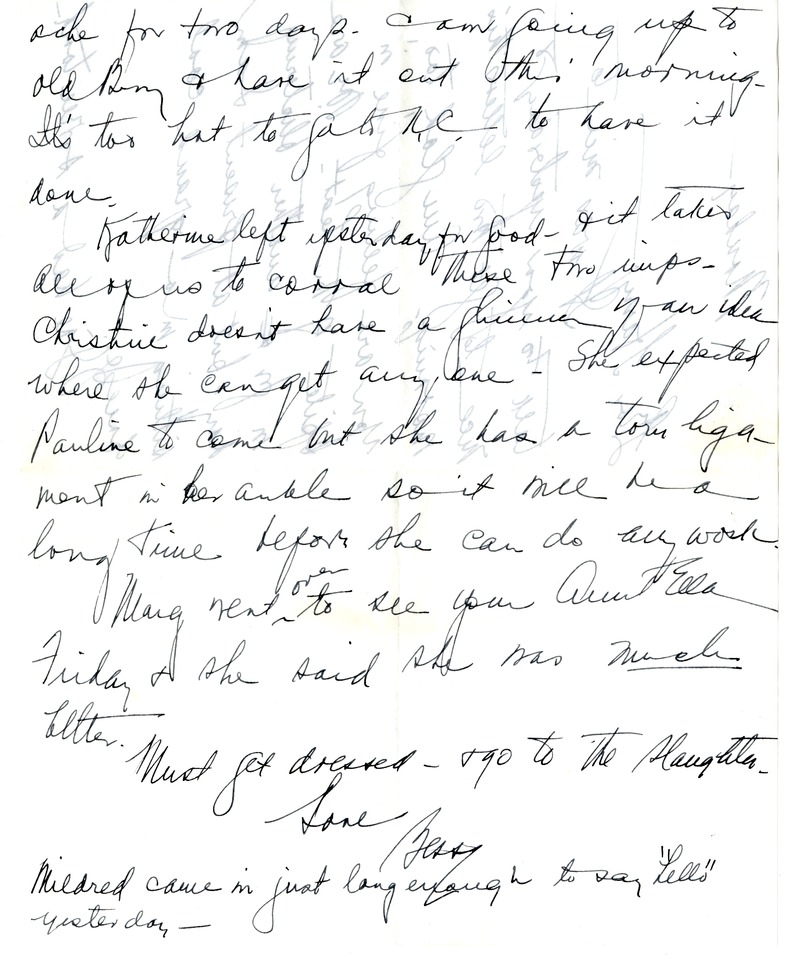 ache for two days. I am going up to
old Berry & have it out this morning.
It's too hot to go to K.C. to have it
done.
Katherine left yesterday for good - & it takes
all of us to corral these two imps -
Christine doesn't have a glimmer of an idea
where she can get any one - She expected
Pauline to come but she has a torn liga-
ment in her ankle so it will be a
long time before she can do any work.
Marg went over to see your Aunt Ella
Friday & she said she was much
better.
Must get dressed - & go to the slaughter.
Love
Bess
Mildred came in just long enough to say "hello"
yesterday -